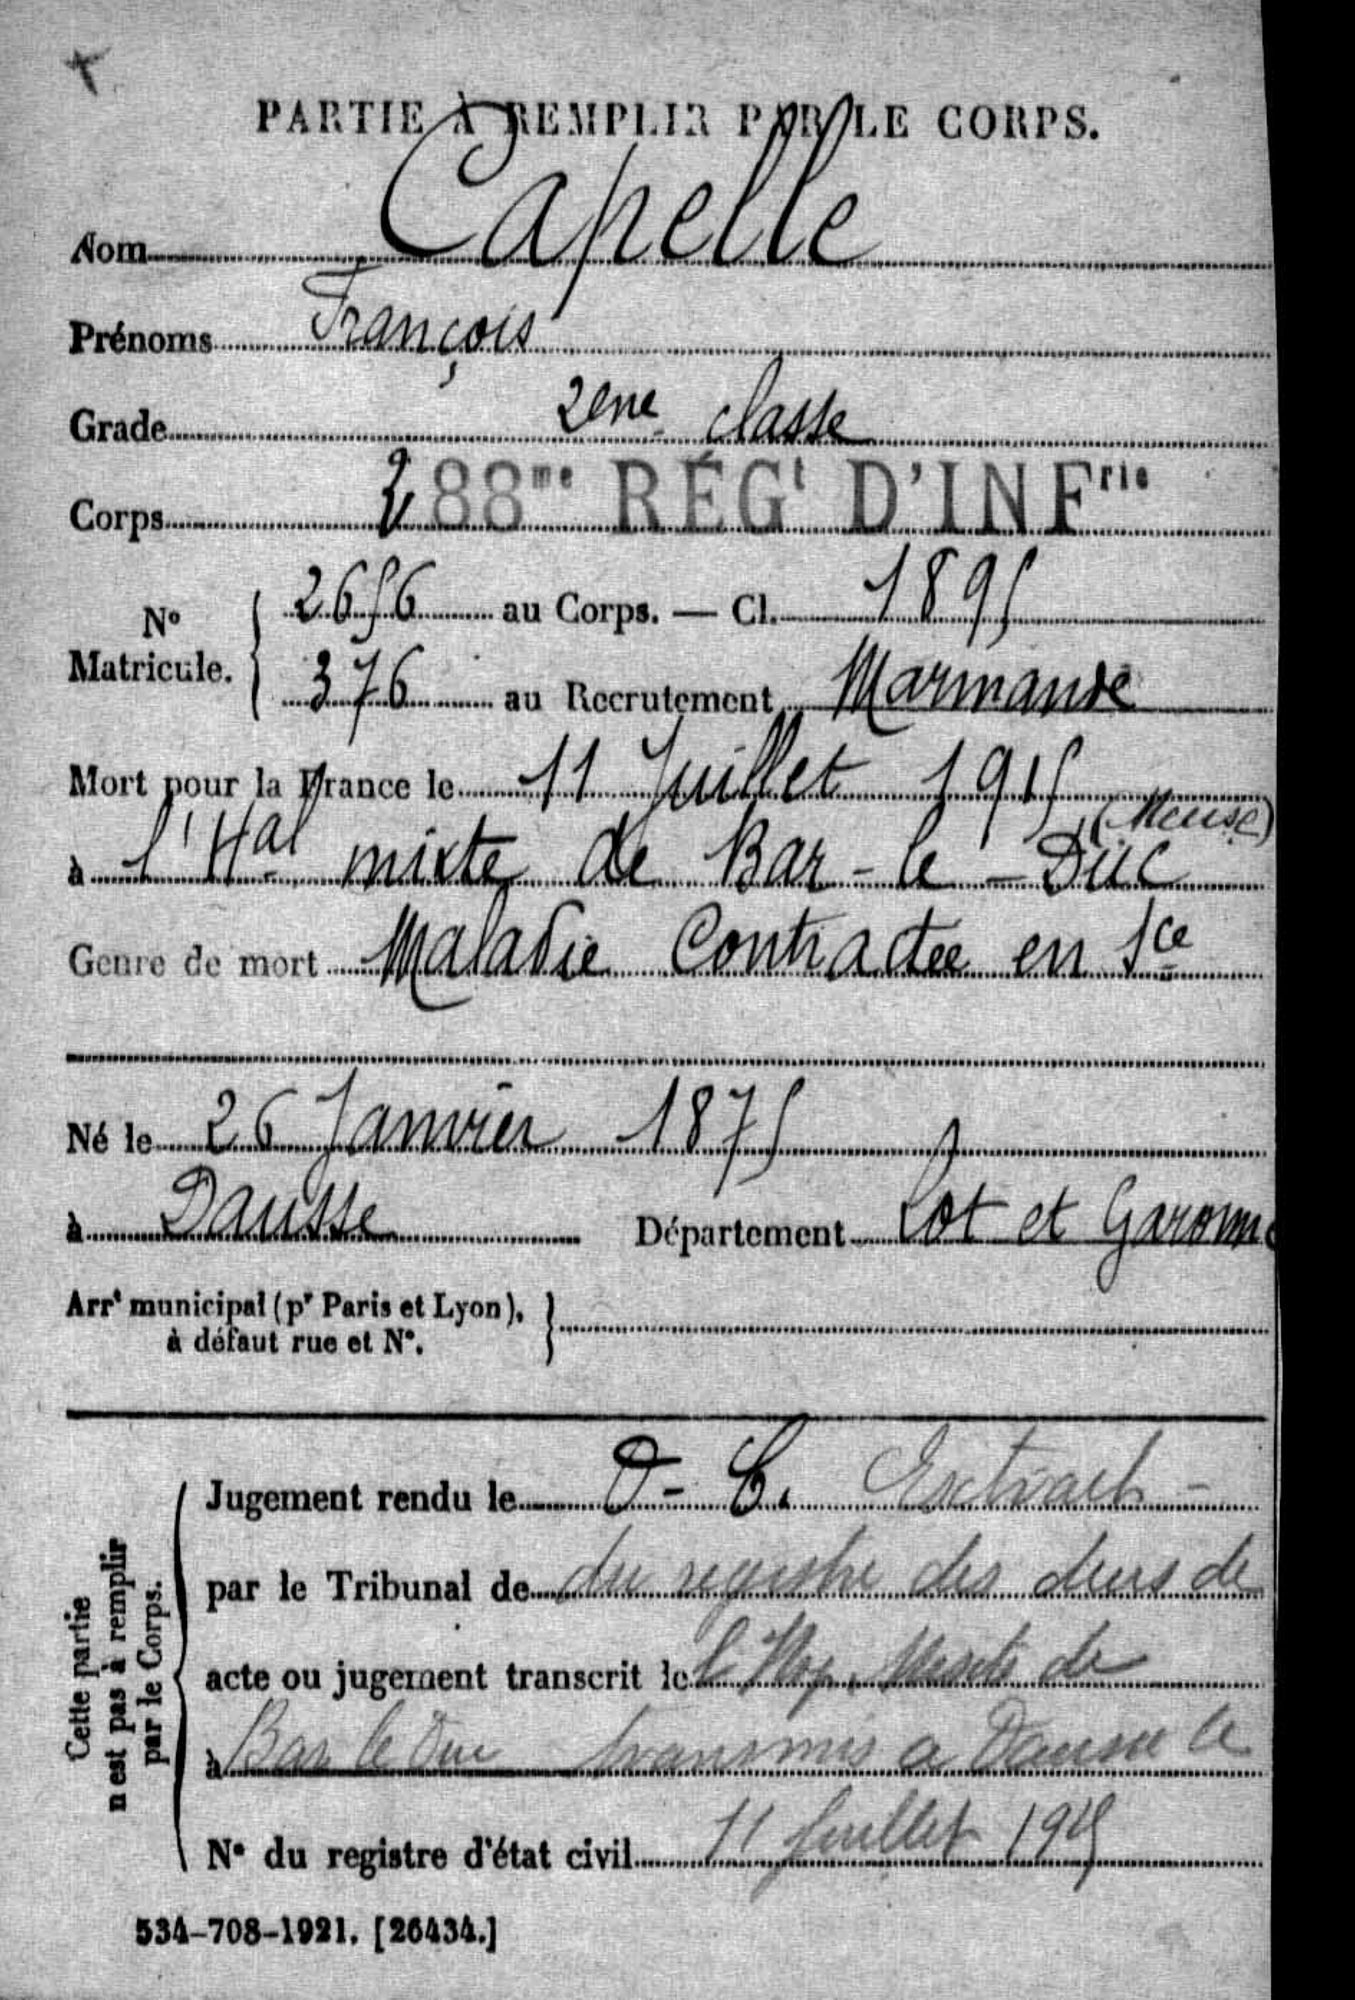 PARTIE À REMPLIR PAR LE CORPS.
Nom Capelle
Prénoms François
Grade 2ème classe
Corps 288me RÉGt D'INFrie
No Matricule. 2656 au Corps. — Cl. 1895
376 au Recrutement Marmande
Mort pour la France le 11 Juillet 1915
à l'Hal mixte de Bar-le-Duc (Meuse)
Genre de mort Maladie Contractée en Sce
Né le 26 Janvier 1875
à Dausse Département Lot et Garonne
Arrt municipal (pr Paris et Lyon),
à défaut rue et No.
Cette partie
n'est pas à remplir
par le Corps.
Jugement rendu le D-C. Extrait -
par le Tribunal de du registre des décès de
acte ou jugement transcrit le l'Hop. Mixte de
à Bar le Duc transmis a Dausse le
No du registre d'état civil 11 Juillet 1915
534-708-1921. [26434.]